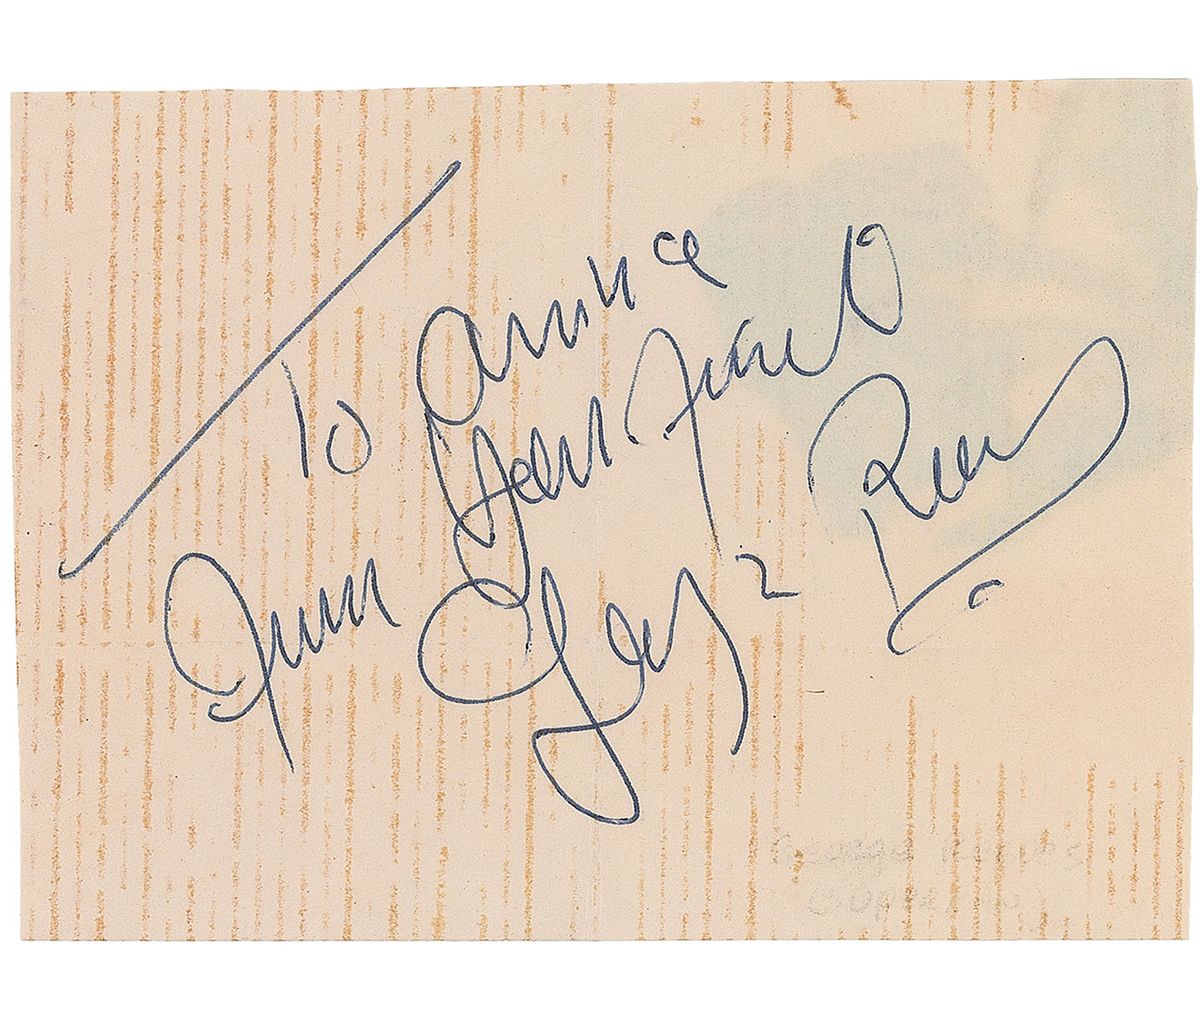 To Anna
Your friend
from George Reeves
George Reeves
(Superman)